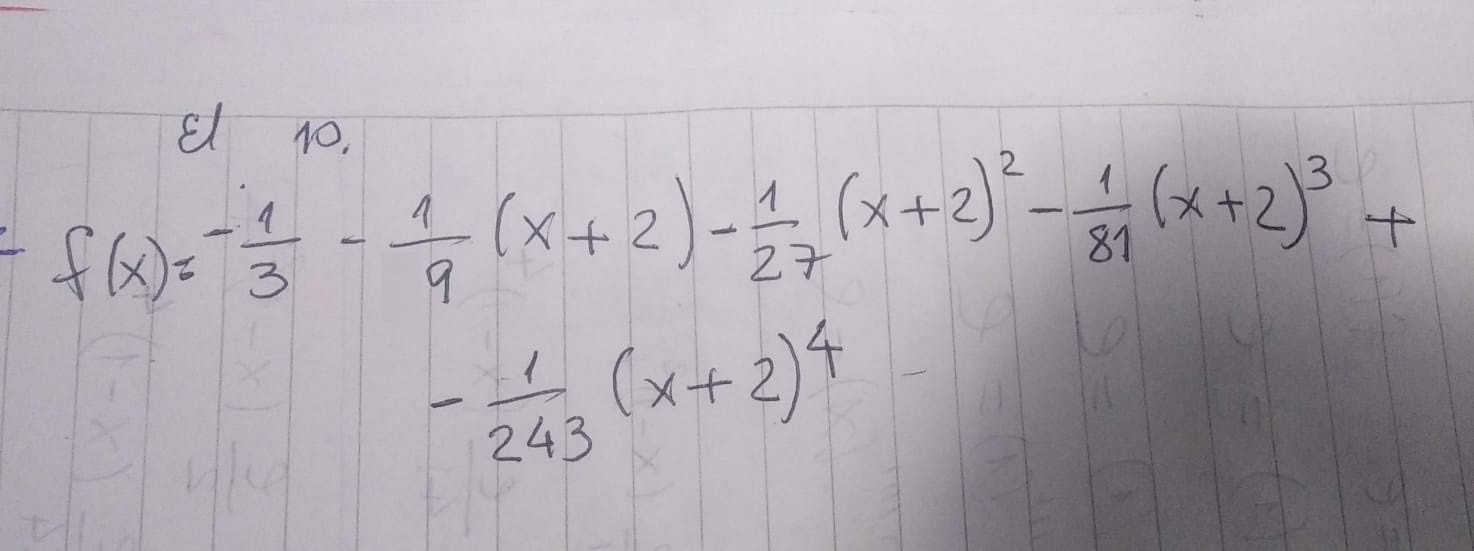 El 10.
f(x)= -1/3 - 1/9 (x+2) - 1/27 (x+2)² - 1/81 (x+2)³ +
- 1/243 (x+2)⁴